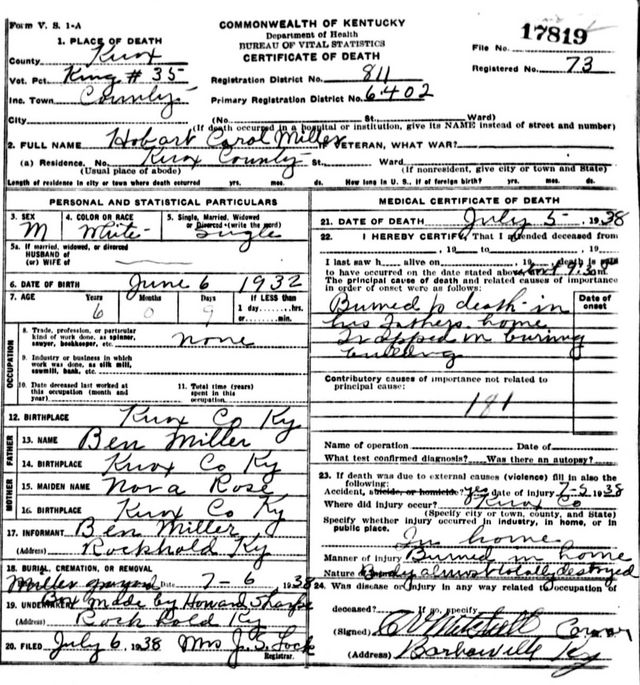 Form V. S. 1-A
COMMONWEALTH OF KENTUCKY
Department of Health
BUREAU OF VITAL STATISTICS
CERTIFICATE OF DEATH
File No. 17819
Registered No. 73
1. PLACE OF DEATH
County Knox
Vot. Pct. King # 35
Inc. Town County
City
Registration District No. 811
Primary Registration District No. 6402
(No. St. Ward)
(If death occurred in a hospital or institution, give its NAME instead of street and number)
2. FULL NAME Hobart Carol Miller VETERAN, WHAT WAR?
(a) Residence. No. Knox County St. Ward
(Usual place of abode) (If nonresident, give city or town and State)
Length of residence in city or town where death occurred yrs. mos. ds. How long in U. S., if of foreign birth? yrs. mos. ds.
PERSONAL AND STATISTICAL PARTICULARS
3. SEX M
4. COLOR OR RACE White
5. Single, Married, Widowed or Divorced (write the word) Sigle
5a. If married, widowed, or divorced
HUSBAND of
(or) WIFE of
6. DATE OF BIRTH June 6 1932
7. AGE Years Months Days If LESS than
6 0 9 1 day hrs. or min.
OCCUPATION
8. Trade, profession, or particular kind of work done, as spinner, sawyer, bookkeeper, etc. none
9. Industry or business in which work was done, as silk mill, sawmill, bank, etc.
10. Date deceased last worked at this occupation (month and year)
11. Total time (years) spent in this occupation
12. BIRTHPLACE Knox Co Ky
FATHER
13. NAME Ben Miller
14. BIRTHPLACE Knox Co Ky
MOTHER
15. MAIDEN NAME Nora Rose
16. BIRTHPLACE Knox Co Ky
17. INFORMANT Ben Miller
(Address) Rockhold Ky
18. BURIAL, CREMATION, OR REMOVAL
Miller Date 7-6 1938
19. UNDERTAKER Box made by Howard
(Address) Rockhold Ky
20. FILED July 6 1938 Mrs J. S. Lock
Registrar.
MEDICAL CERTIFICATE OF DEATH
21. DATE OF DEATH July 5 1938
22. I HEREBY CERTIFY, That I attended deceased from
, 19 to , 19
I last saw h alive on , 19 death is said
to have occurred on the date stated above, at 9:30 m.
The principal cause of death and related causes of importance in order of onset were as follows:
Date of onset
Burned to death in
his Fathers home
Trapped in buring
building
Contributory causes of importance not related to principal cause:
181
Name of operation Date of
What test confirmed diagnosis? Was there an autopsy?
23. If death was due to external causes (violence) fill in also the following:
Accident, suicide, or homicide? yes date of injury 7-5 1938
Where did injury occur? Knox Co
(Specify city or town, county, and State)
Specify whether injury occurred in industry, in home, or in public place.
In home
Manner of injury Burned in home
Nature of Body almost totally destroyed
24. Was disease or injury in any way related to occupation of
deceased? If so, specify
(Signed) Mitchell Coroner
(Address) Barbourville Ky